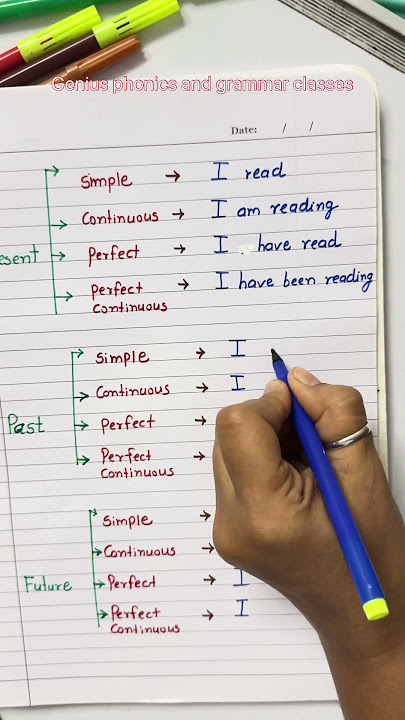 Genius phonics and grammar classes
Date: / /
Simple → I read
Continuous → I am reading
esent
Perfect → I have read
Perfect Continuous → I have been reading
Simple → I
Continuous → I
Past
Perfect →
Perfect Continuous →
Simple →
Continuous →
Future
Perfect → I
Perfect Continuous → I